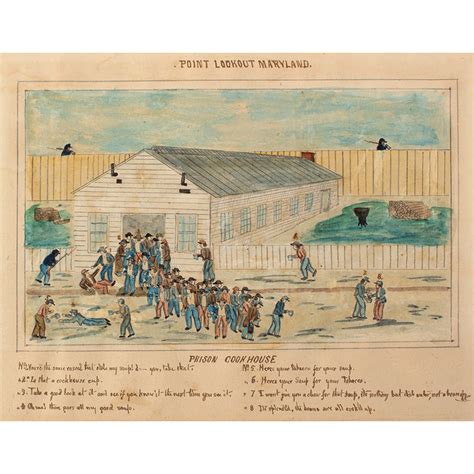 POINT LOOKOUT MARYLAND.
PRISON COOKHOUSE
No 1. You're the same rascal that stole my soup! d— you, take that.
" 2. Is that a cookhouse cup.
" 3. Take a good look at it and see if you know it the next time you see it.
" 4 Oh man thar goes all my good soup.
No 5. Heres your tobacco for your soup.
" 6. Heres your soup for your Tobacco.
" 7. I wont give you a chew for that soup, its nothing but
" 8 Its splendid, the beans are all cooked up.